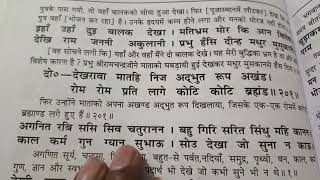 पुत्रके पास गयी, तो वहाँ बालकको सोया हुआ देखा। फिर
पुत्र वहाँ [भोजन कर रहा] है। उनके हृदयमें कम्प होने लगा और मनको धीरज नहीं
इहाँ उहाँ दुइ बालक देखा। मतिभ्रम मोर कि आन
देखि राम जननी अकुलानी। प्रभु हँसि दीन्ह मधुर मुसुकानी
[वह सोचने लगी कि] यहाँ और वहाँ मैंने दो बालक देखे। यह मेरी बुद्धिका भ्रम है
विशेष कारण है? प्रभु श्रीरामचन्द्रजीने माताको घबड़ायी हुई देखकर मधुर मुसकानसे
दो०—देखरावा मातहि निज अद्भुत रूप अखंड।
रोम रोम प्रति लागे कोटि कोटि ब्रह्मंड॥ २०१॥
फिर उन्होंने माताको अपना अखण्ड अद्भुत रूप दिखलाया, जिसके एक-एक रोममें
ब्रह्माण्ड लगे हुए हैं॥ २०१॥
अगनित रबि ससि सिव चतुरानन। बहु गिरि सरित सिंधु महि
काल कर्म गुन ग्यान सुभाऊ। सोउ देखा जो सुना न
अगणित सूर्य, चन्द्रमा, बहुत-से पर्वत, नदियाँ, समुद्र, पृथ्वी, वन,
गुण, ज्ञान और पदार्थ भी देखे जो कभी सुने भी न थे॥